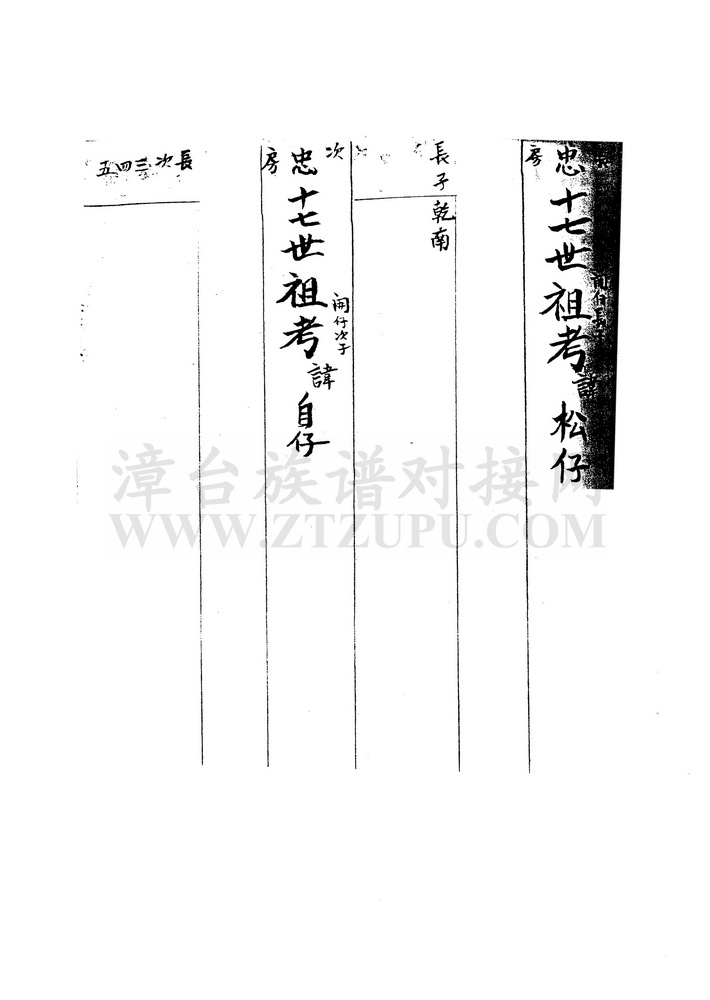 長
忠
房
十七世祖考諱松仔
開仔長子
長子乾南
次
忠
房
十七世祖考諱自仔
開仔次子
長
次
三
四
五
漳台族谱对接网
WWW.ZTZUPU.COM